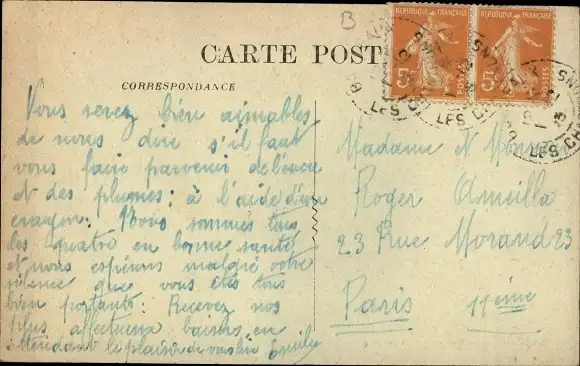 B
RÉPUBLIQUE FRANÇAISE
RÉPUBLIQUE FRANÇAISE
POSTES
POSTES
CARTE POST
CORRESPONDANCE
Vous serez bien aimables
de nous dire s'il faut
vous faire parvenir de l'encre
et des plumes; à l'aide d'un
crayon. Nous sommes tous
les quatre en bonne santé
et nous espérons malgré votre
silence que vous etes tous
bien portants. Recevez nos
plus affectueux baisers en
attendant le plaisir de vous lire Emilie
Madame et Monsieur
Roger
23 Rue Morand 23
Paris 11eme